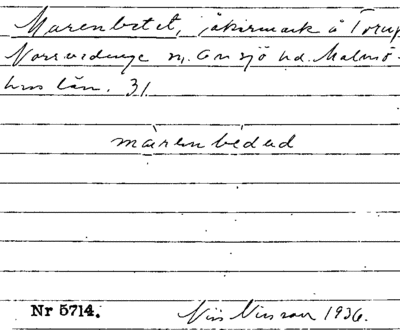 Marenbetet, åkermark å Torup
Norrvidinge sn. Onsjö hd. Malmö-
hus län. 31
màrenbèdad
Nr 5714. Nils Nilsson 1936.